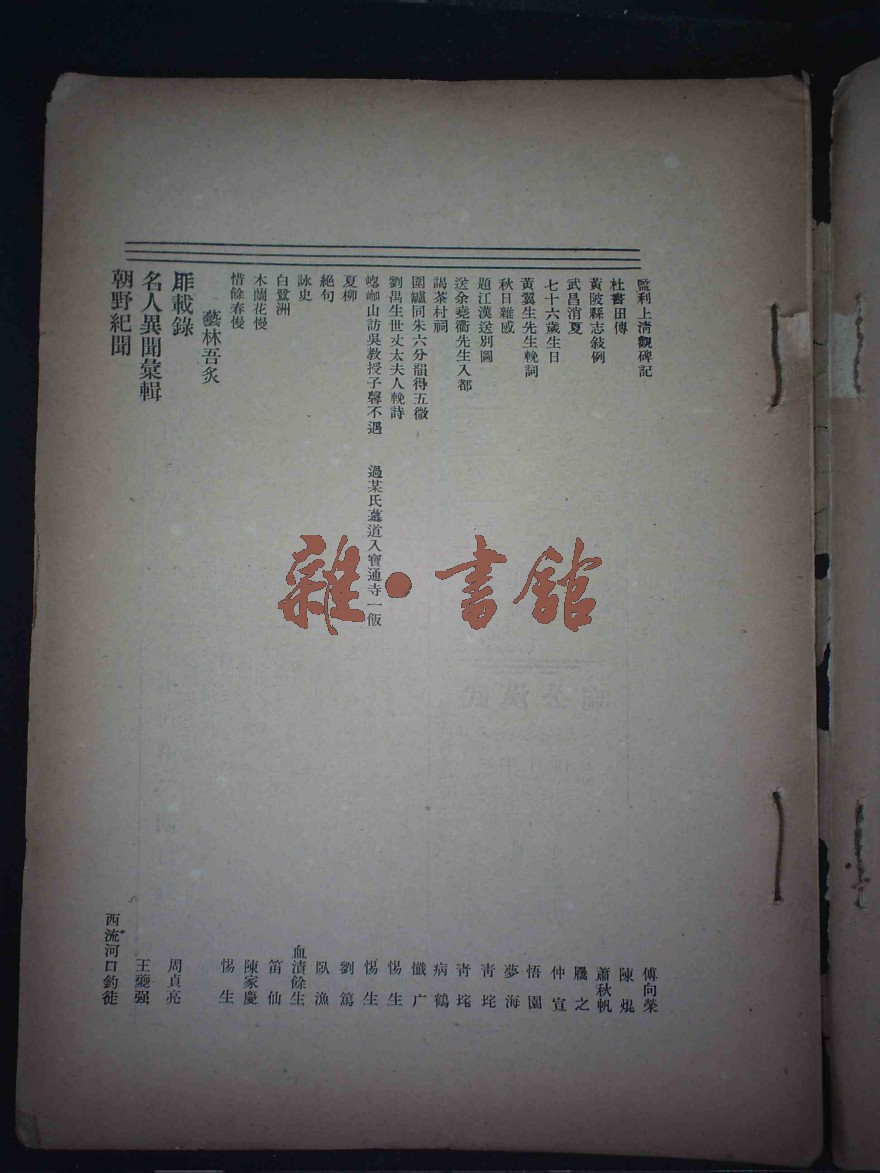 監利上清觀碑記 傅向榮
杜書田傳 陳焜
黃陂縣志敍例 蕭秋帆
武昌消夏 之
七十六歲生日 仲宣
黃翼生先生輓詞 悟園
秋日雜感 夢海
題江漢送別圖 青垞
送余堯衢先生入都 青垞
謁茶村祠 病鶴
圍爐同朱六分韻得五微 懺广
劉禺生世丈太夫人輓詩 惕生
山訪吳教授子馨不遇 過某氏墓道入寶通寺一飯 惕生
夏柳 劉篤
絕句 臥漁
詠史 血漬餘生
白鷺洲 笛仙
木蘭花慢 陳家慶
惜餘春慢 惕生
藝林吾炙
厞載錄 周貞亮
名人異聞彙輯 王夔强
朝野紀聞 西流河口釣徒
雜·書館